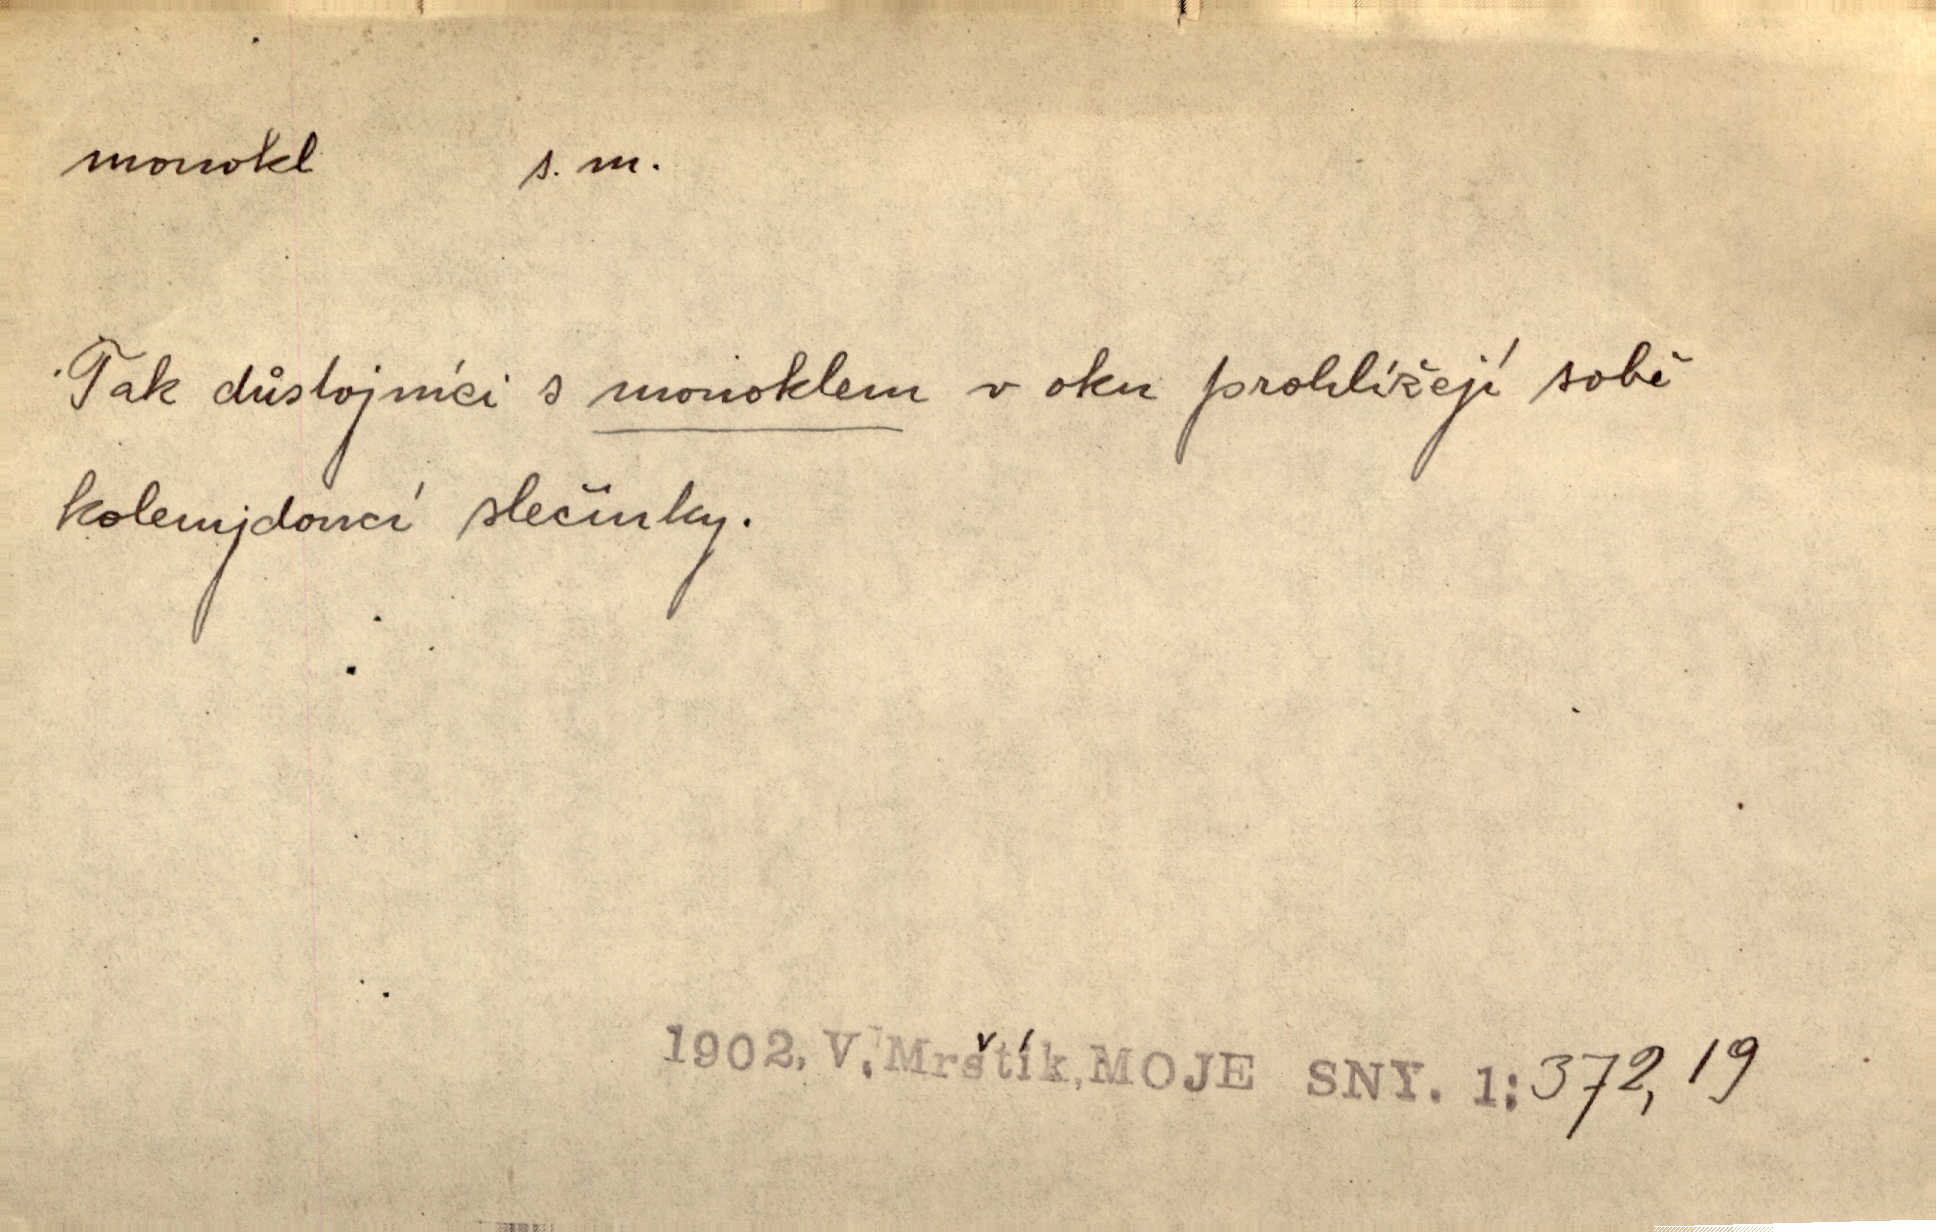 monokl s. m.
Tak důstojníci s monoklem v oku prohlížejí sobě
kolemjdoucí slečinky.
1902, V. Mrštík, MOJE SNY. 1: 372, 19